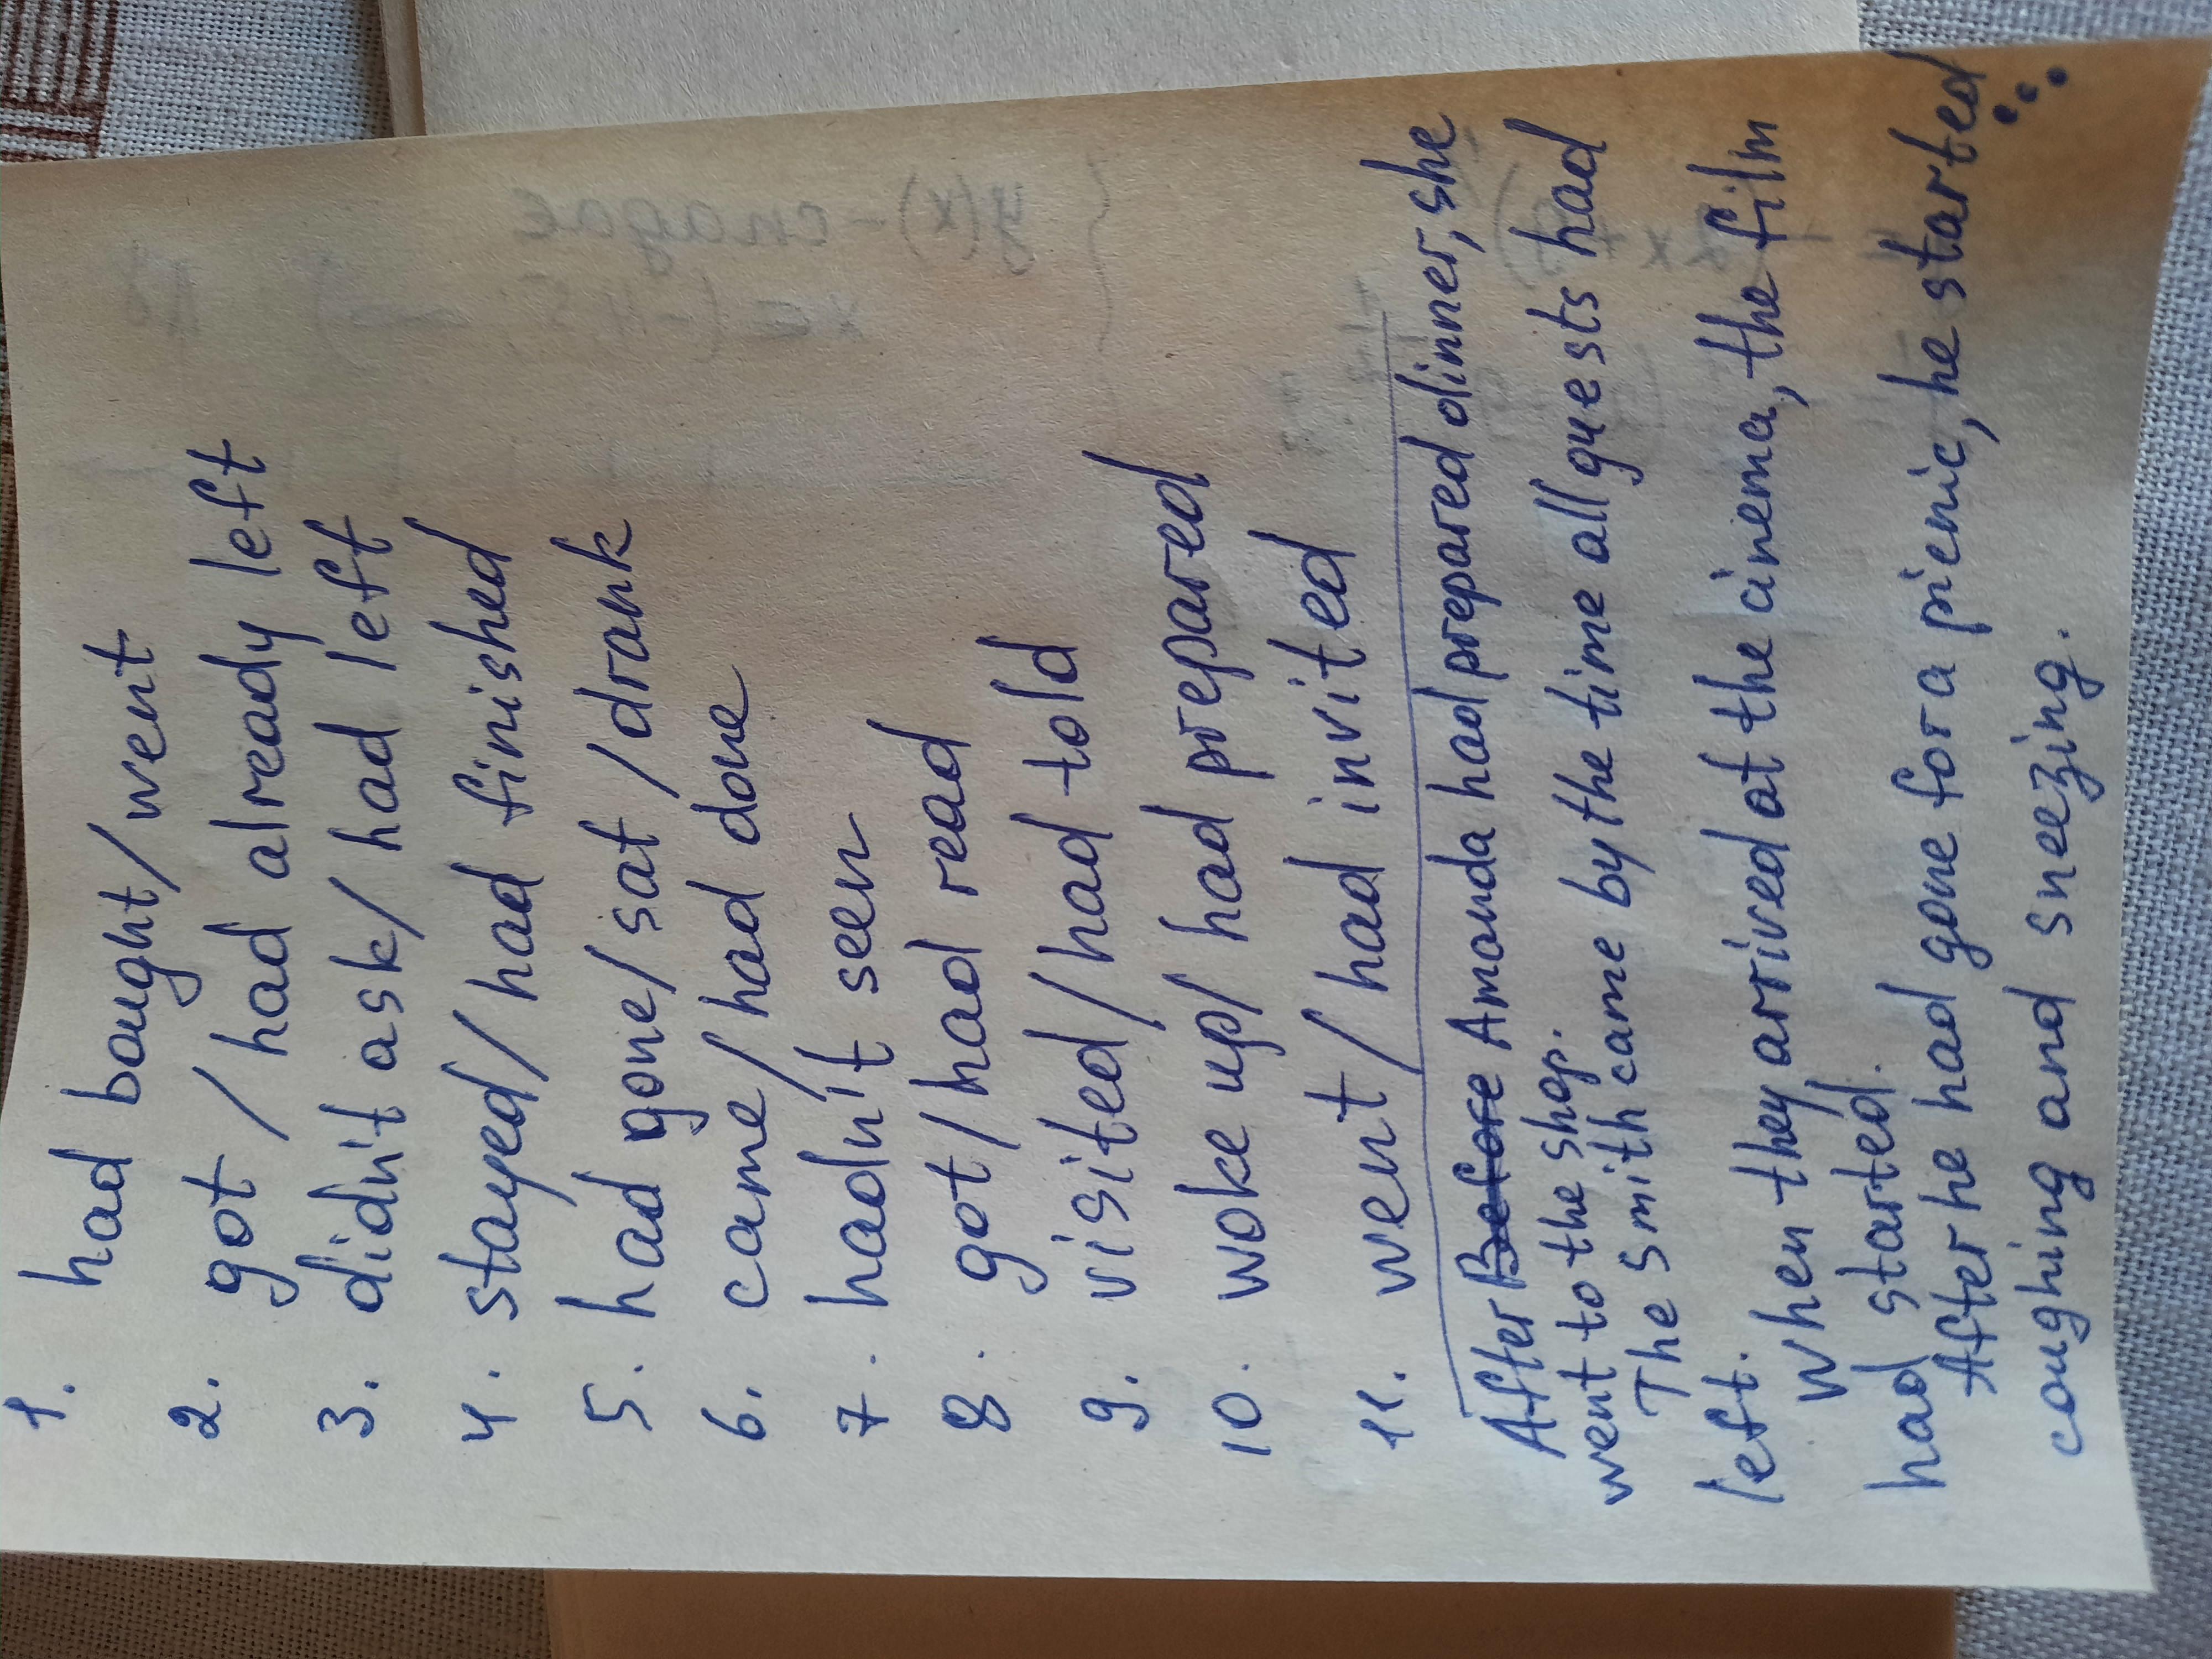 1. had bought/went
2. got / had already left
3. didn't ask/ had left
4. stayed/ had finished
5. had gone/sat /drank
6. came/had done
7. hadn't seen
8. got/had read
9. visited/had told
10. woke up/ had prepared
11. went/had invited
After Before Amanda had prepared dinner, she
went to the shop.
The Smith came by the time all guests had
left.
When they arrived at the cinema, the film
had started.
After he had gone for a picnic, he started
coughing and sneezing.
y(x) - спадає